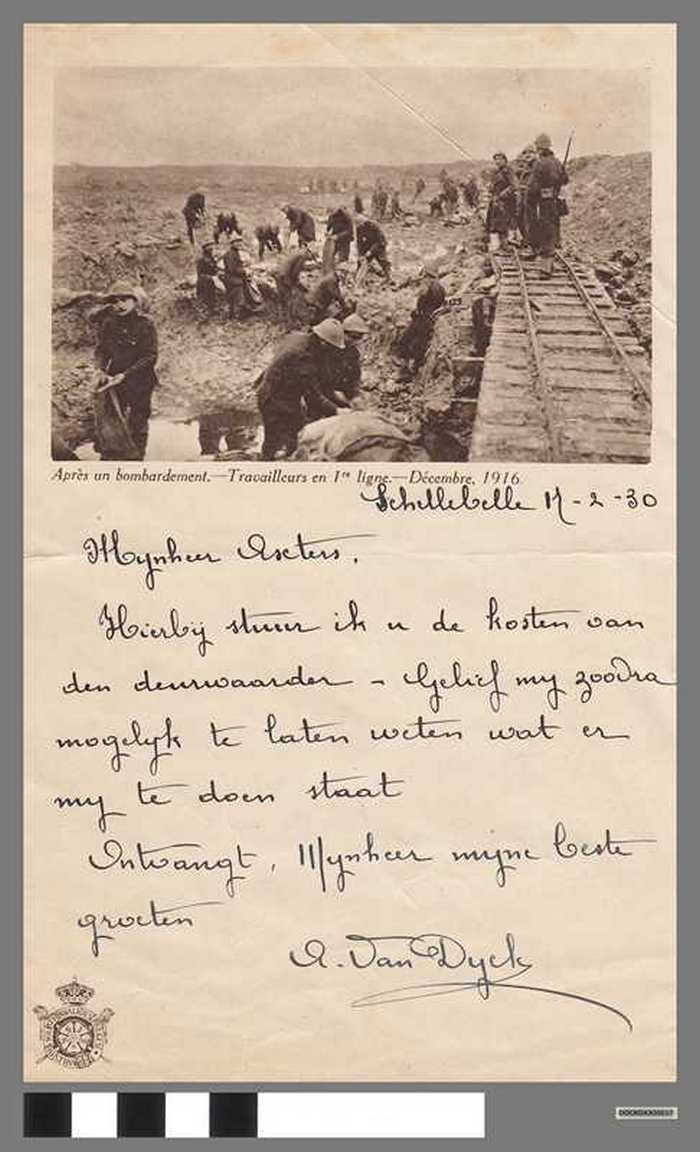 Après un bombardement.—Travailleurs en 1re ligne.—Décembre, 1916.
Schellebelle 17-2-30
Mynheer
Hierbij stuur ik u de kosten van
den deurwaarder - Gelief my zoodra
mogelyk te laten weten wat er
my te doen staat
Ontvangt, Mynheer mijne beste
groeten
A. Van Dyck